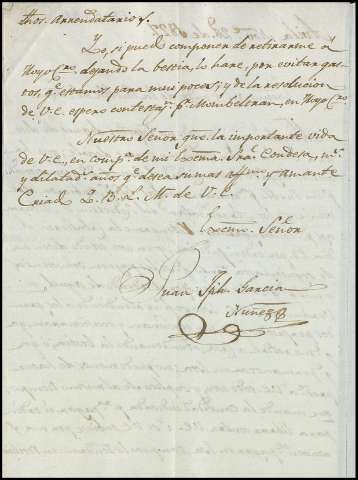 thos. arrendatario y.
Yo, si puedo componer de retirarme a
Hoyo Cro. dejando la bestia, lo hare, por evitar gas-
tos, qe. estamos para muy pocos; y de la resolucion
de V.E. espero contestasn. pr. Mombeltran, en Hoyo Cro.
Nuestro Señor que la importante vida
de V.E., en compa. de mi Excma. Sra. Condesa, ms.
y dilatads. años qe. desea su mas afmo. y amante
Criado Q. B. L. M. de V.E.
Excmo. Señor
Juan Jph. Garcia
Nuñez